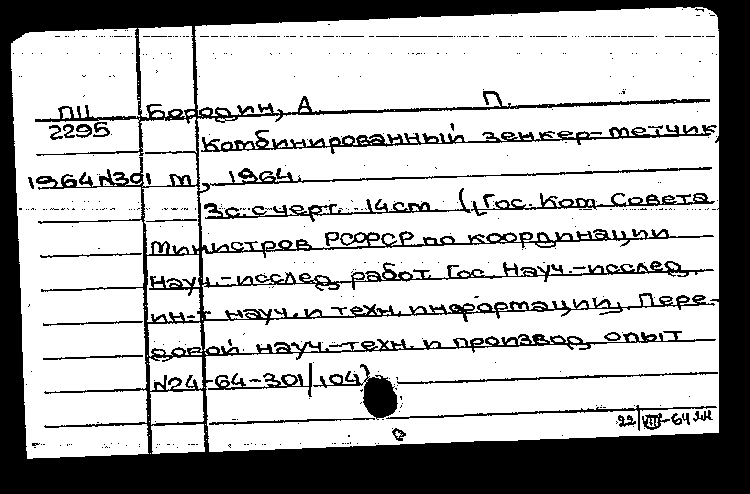 ПII Бородин, А. П.
2295 Комбинированный зенкер-метчик,
1964 №301 м, 1964.
3 с. с черт. 14 см (Гос. Ком. Совета
Министров РСФСР по координации
науч.-исслед. работ. Гос. Науч.-исслед.
ин-т науч. и техн. информации. Пере-
довой науч.-техн. и производ. опыт
№24-64-301/104)
22/VIII-64